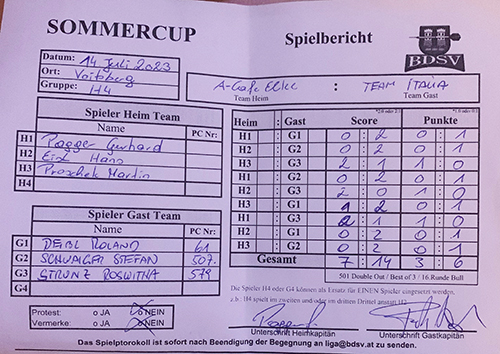 SOMMERCUP
Spielbericht
BDSV
Datum: 14 Juli 2023
Ort: Voitsberg
Gruppe: H4
A-Cafe : TEAM ITALIA
Team Heim Team Gast
Spieler Heim Team
Name PC Nr:
H1 Pogger Gerhard
H2 Hans
H3 Proschek Martin
H4
Spieler Gast Team
Name PC Nr:
G1 DEIBL ROLAND 61
G2 SCHWAIGER STEFAN 507.
G3 STRUNZ ROSWITHA 579
G4
Protest: o JA o NEIN
Vermerke: o JA o NEIN
Heim : Gast Score Punkte
H1 : G1 0 : 2 0 : 1
H2 : G2 0 : 2 0 : 1
H3 : G3 2 : 1 1 : 0
H1 : G2 0 : 2 0 : 1
H2 : G3 2 : 0 1 : 0
H3 : G1 1 : 2 0 : 1
H1 : G3 2 : 1 1 : 0
H2 : G1 0 : 2 0 : 1
H3 : G2 0 : 2 0 : 1
Gesamt 7 : 14 3 : 6
501 Double Out / Best of 3 / 16.Runde Bull
Die Spieler H4 oder G4 können als Ersatz für EINEN Spieler eingesetzt werden.
z.b: H4 spielt im zweiten und oder im dritten Drittel anstatt H2
Unterschrift Heimkapitän Unterschrift Gastkapitän
Das Spielptorokoll ist sofort nach Beendigung der Begegnung an liga@bdsv.at zu senden.